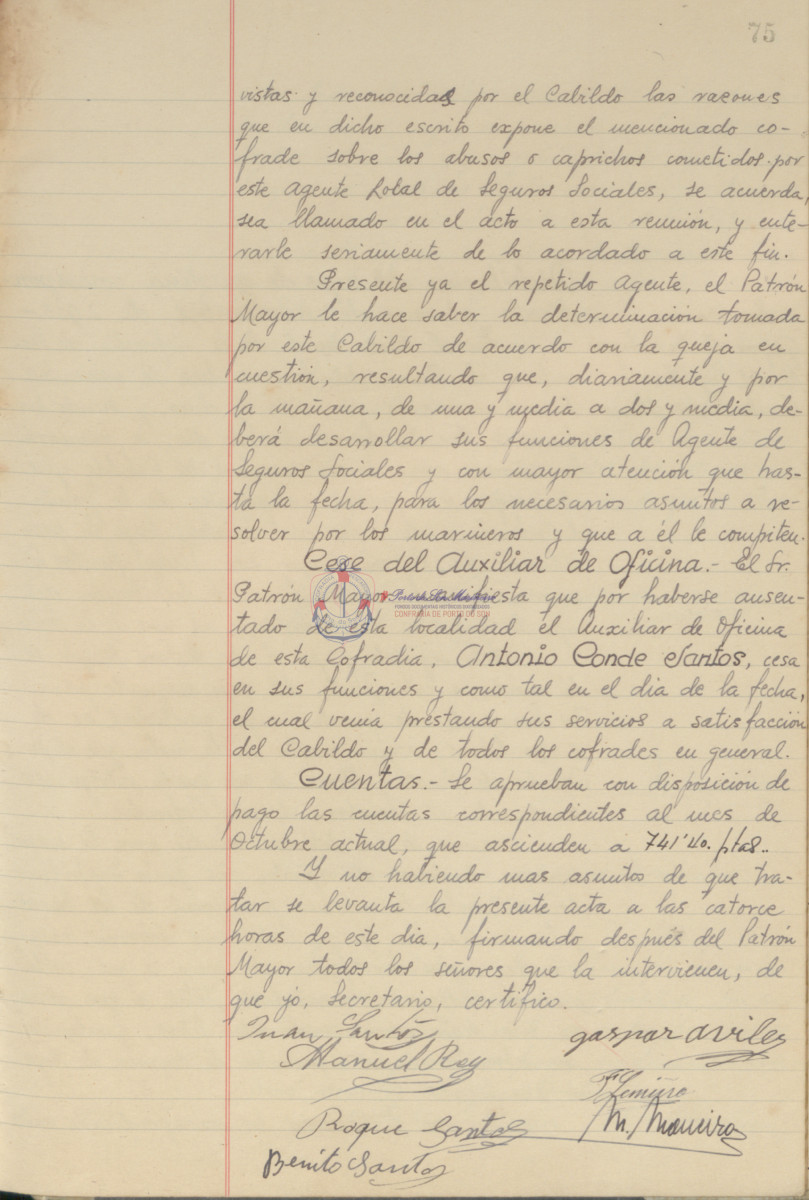 75
vistas y reconocidas por el Cabildo las razones
que en dicho escrito expone el mencionado co-
frade sobre los abusos o caprichos cometidos por
este Agente Lobal de Seguros Sociales, se acuerda,
sea llamado en el acto a esta reunión, y ente-
rarle seriamente de lo acordado a este fin.
Presente ya el repetido Agente, el Patrón
Mayor le hace saber la determinación tomada
por este Cabildo de acuerdo con la queja en
cuestión, resultando que, diariamente y por
la mañana, de una y media a dos y media, de-
berá desarrollar sus funciones de Agente de
Seguros Sociales y con mayor atención que has-
ta la fecha, para los necesarios asuntos a re-
solver por los marineros y que a él le compiten.
Cese del Auxiliar de Oficina.- El Sr.
Patrón Mayor manifiesta que por haberse ausen-
CONFRARÍA DE PORTO DO SON
tado de esta localidad el Auxiliar de Oficina
de esta Cofradia, Antonio Conde Santos, cesa
en sus funciones y como tal en el dia de la fecha,
el cual venia prestando sus servicios a satisfacción
del Cabildo y de todos los cofrades en general.
Cuentas.- Se aprueban con disposición de
pago las cuentas correspondientes al mes de
Octubre actual, que ascienden a 741'40. ptas..
Y no habiendo mas asuntos de que tra-
tar se levanta la presente acta a las catorce
horas de este dia, firmando después del Patrón
Mayor todos los señores que la intervienen, de
que yo, Secretario, certifico.
Juan Santos
gaspar aviles
Manuel Rey
Roque Santos
M. Maneiro
Benito Santos